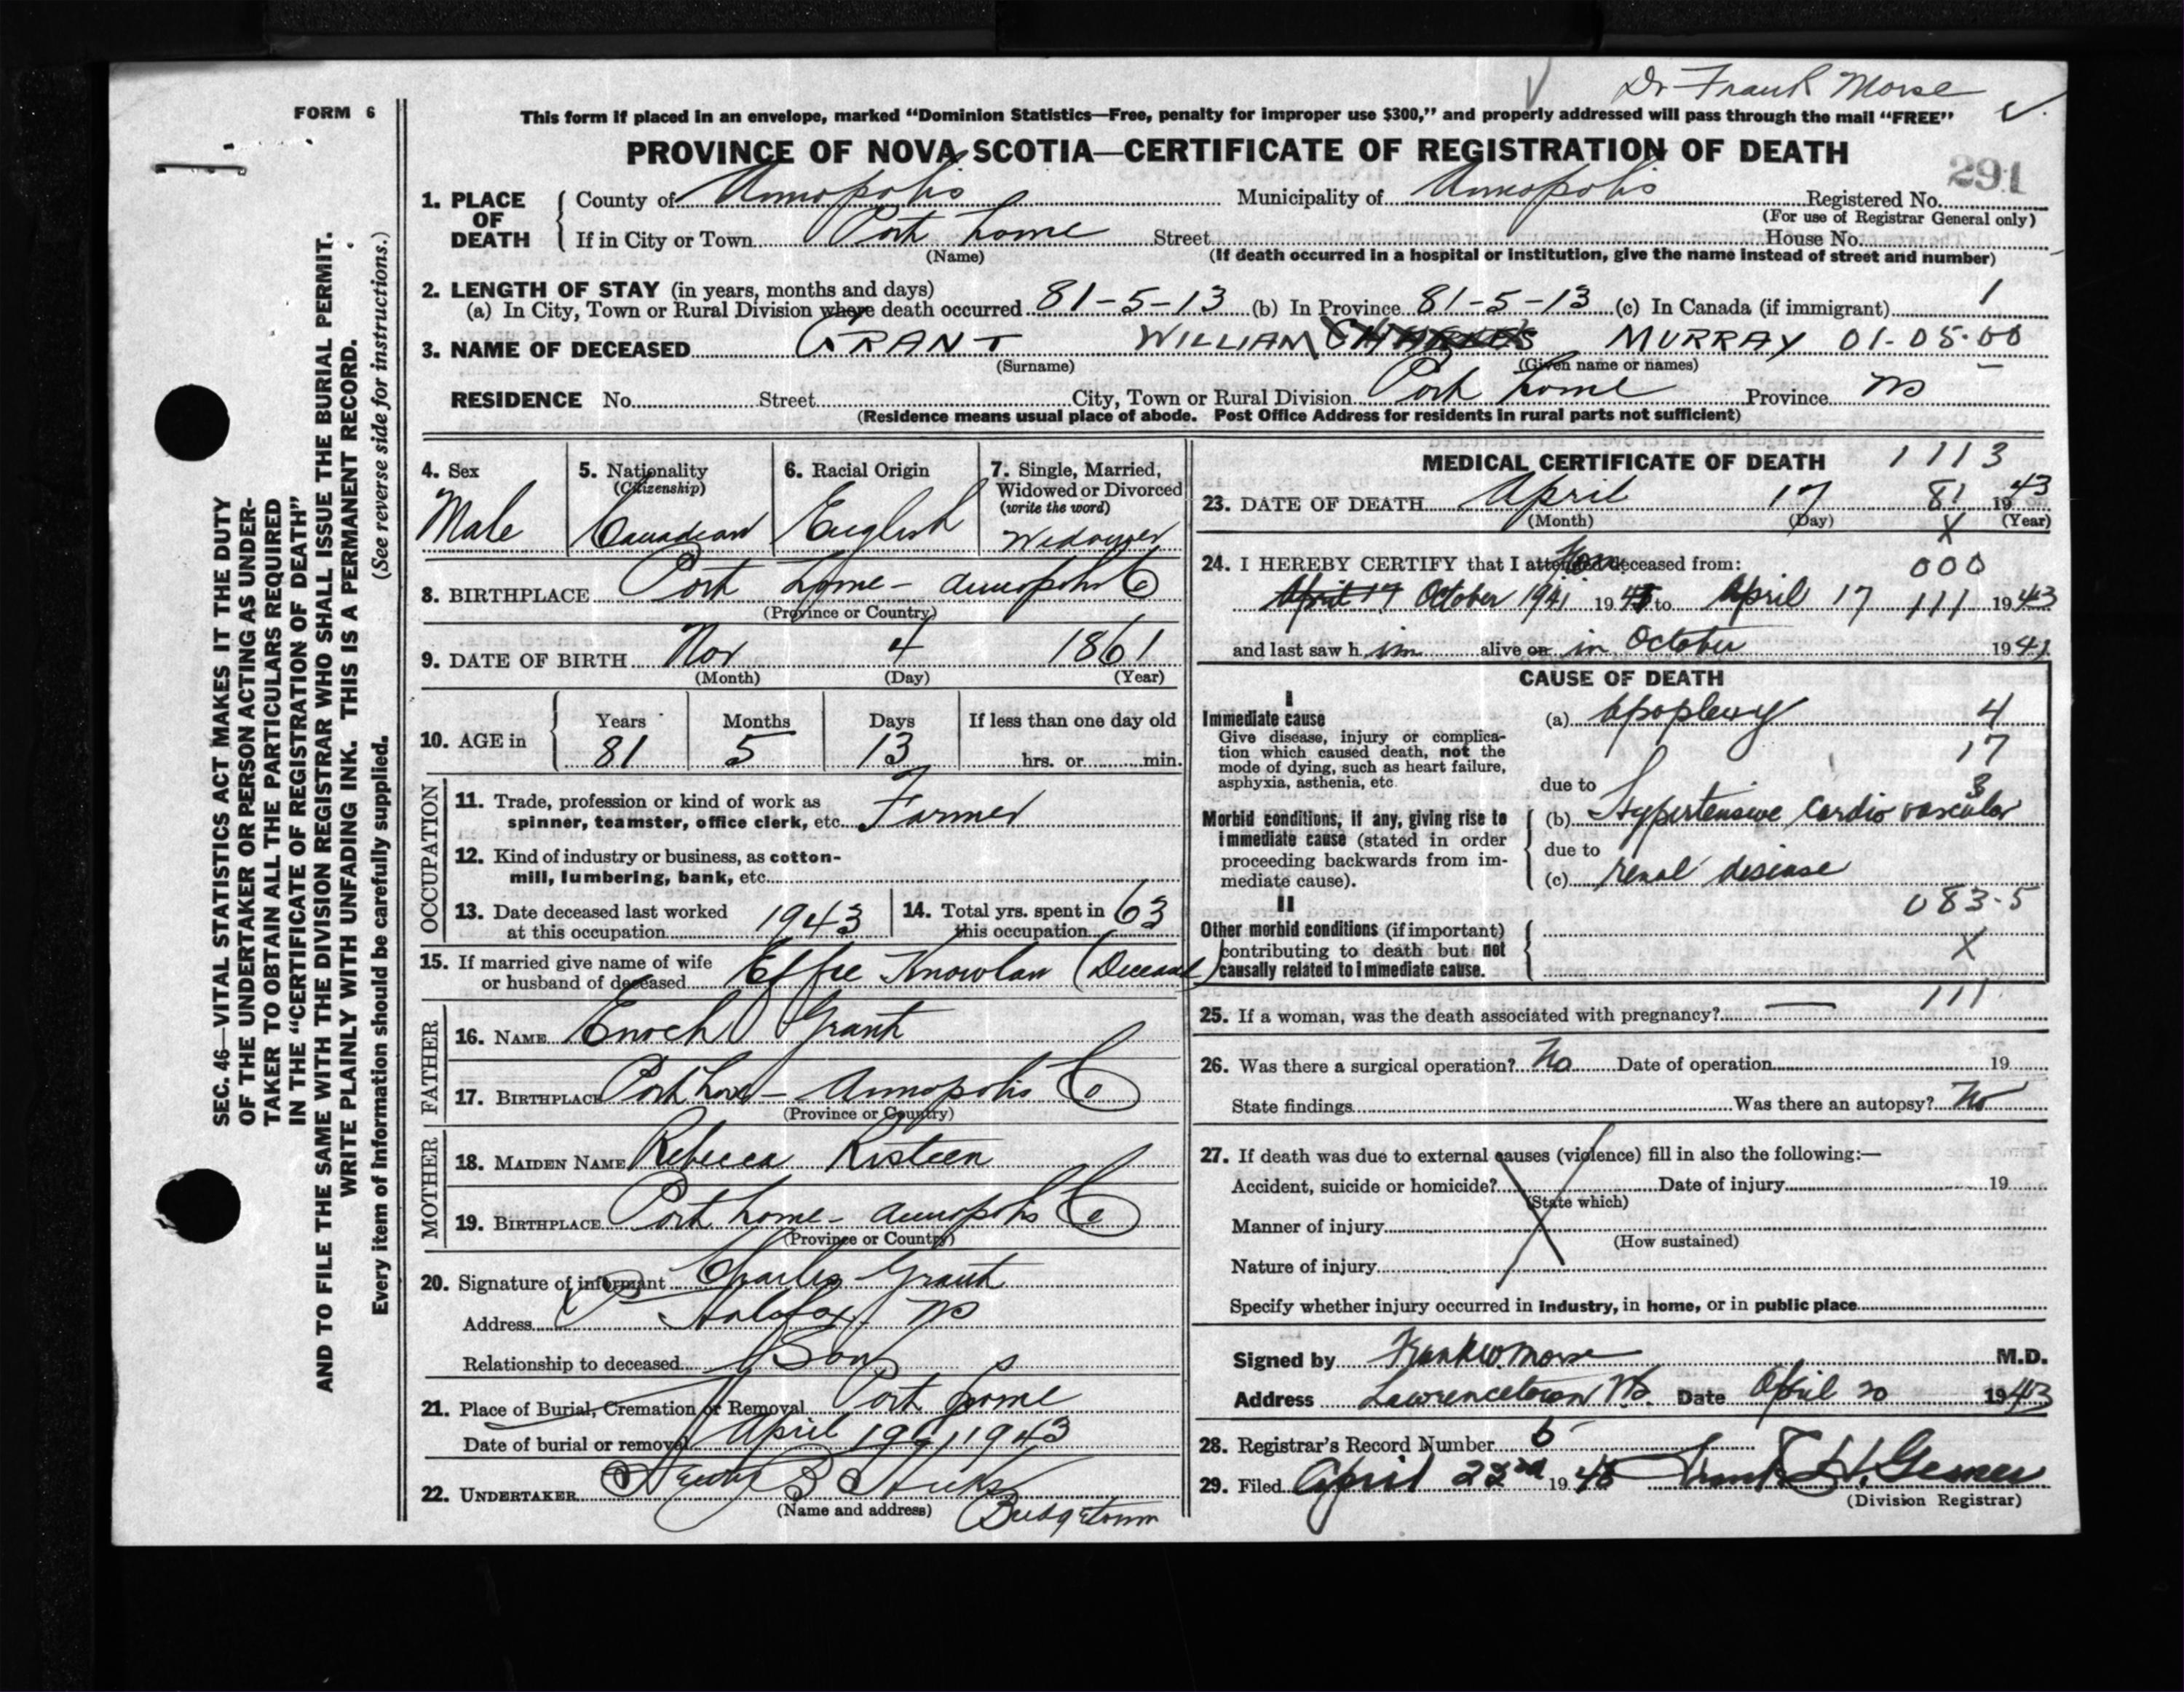 Dr Frank Morse
FORM 6
This form if placed in an envelope, marked “Dominion Statistics—Free, penalty for improper use $300,” and properly addressed will pass through the mail “FREE”
PROVINCE OF NOVA SCOTIA—CERTIFICATE OF REGISTRATION OF DEATH
291
1. PLACE OF DEATH
County of Annapolis Municipality of Annapolis Registered No.
(For use of Registrar General only)
If in City or Town Port Lorne Street House No.
(Name) (If death occurred in a hospital or institution, give the name instead of street and number)
2. LENGTH OF STAY (in years, months and days)
(a) In City, Town or Rural Division where death occurred 81-5-13 (b) In Province 81-5-13 (c) In Canada (if immigrant) 1
3. NAME OF DECEASED GRANT WILLIAM MURRAY 01-05-00
(Surname) (Given name or names)
RESIDENCE No. Street City, Town or Rural Division Port Lorne Province NS
(Residence means usual place of abode. Post Office Address for residents in rural parts not sufficient)
4. Sex Male
5. Nationality (Citizenship) Canadian
6. Racial Origin English
7. Single, Married, Widowed or Divorced (write the word) Widower
8. BIRTHPLACE Port Lorne - Annapolis Co
(Province or Country)
9. DATE OF BIRTH Nov 4 1861
(Month) (Day) (Year)
10. AGE in Years 81 Months 5 Days 13 If less than one day old hrs. or min.
OCCUPATION
11. Trade, profession or kind of work as spinner, teamster, office clerk, etc. Farmer
12. Kind of industry or business, as cotton-mill, lumbering, bank, etc.
13. Date deceased last worked at this occupation 1943
14. Total yrs. spent in this occupation 63
15. If married give name of wife or husband of deceased Effie Knowlan (Deceased)
FATHER
16. NAME Enoch Grant
17. BIRTHPLACE Port Lorne - Annapolis Co
(Province or Country)
MOTHER
18. MAIDEN NAME Rebecca Risteen
19. BIRTHPLACE Port Lorne - Annapolis Co
(Province or Country)
20. Signature of informant Charles Grant
Address Halifax NS
Relationship to deceased Son s
21. Place of Burial, Cremation or Removal Port Lorne
Date of burial or removal April 19 1943
22. UNDERTAKER B Hicks
(Name and address) Bridgetown
MEDICAL CERTIFICATE OF DEATH 1113
23. DATE OF DEATH April 17 81 1943
(Month) (Day) X (Year)
24. I HEREBY CERTIFY that I attended deceased from: 000
April 17 October 1941 19 to April 17 111 1943
and last saw him alive on in October 1941
CAUSE OF DEATH
I
Immediate cause
Give disease, injury or complication which caused death, not the mode of dying, such as heart failure, asphyxia, asthenia, etc.
(a) Apoplexy 4
17
due to
3
Morbid conditions, if any, giving rise to immediate cause (stated in order proceeding backwards from immediate cause).
(b) Hypertensive Cardio vascular
due to
(c) renal disease
083-5
II
Other morbid conditions (if important) contributing to death but not causally related to immediate cause.
X
111
25. If a woman, was the death associated with pregnancy? —
26. Was there a surgical operation? No Date of operation 19
State findings Was there an autopsy? No
27. If death was due to external causes (violence) fill in also the following:—
Accident, suicide or homicide? Date of injury 19
(State which)
Manner of injury
(How sustained)
Nature of injury
Specify whether injury occurred in industry, in home, or in public place
Signed by Frank W. Morse M.D.
Address Lawrencetown NS. Date April 20 1943
28. Registrar's Record Number
29. Filed April 22nd 19
(Division Registrar)
SEC. 46—VITAL STATISTICS ACT MAKES IT THE DUTY
OF THE UNDERTAKER OR PERSON ACTING AS UNDER-
TAKER TO OBTAIN ALL THE PARTICULARS REQUIRED
IN THE “CERTIFICATE OF REGISTRATION OF DEATH”
AND TO FILE THE SAME WITH THE DIVISION REGISTRAR WHO SHALL ISSUE THE BURIAL PERMIT.
WRITE PLAINLY WITH UNFADING INK. THIS IS A PERMANENT RECORD.
Every item of information should be carefully supplied. (See reverse side for instructions.)